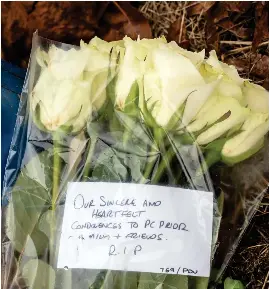 OUR SINCERE AND
HEARTFELT
CONDOLENCES TO PC PRIOR
FAMILY + FRIENDS.
R.I.P
769/PDU